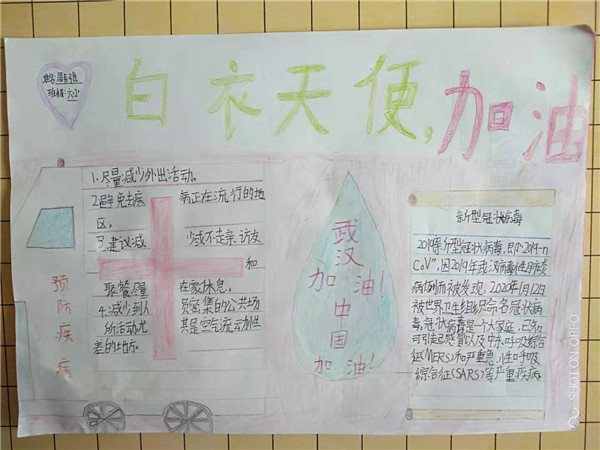 班级:六(2)
白衣天使,加油
1.尽量减少外出活动。
2.避免去疾 病正在流行的地
区。
3.建议减 少减不走亲访友
和
聚餐尽量 在家休息,
4.减少到人 员密集的公共场
所活动尤 其是空气流动性
差的地方。
预防疾病
武汉
加油!
中国
加油!
新型冠状病毒
2019新型冠状病毒,即“2019-n
CoV”,因2019年武汉病毒性肺炎
病例而被发现,2020年1月12日
被世界卫生组织命名冠状病
毒,冠状病毒是一个大家庭,已知
可引起感冒以及中东呼吸综合
征(MERS)和严重急性呼吸
综合征(SARS)等严重疾病
SHOT ON OPPO